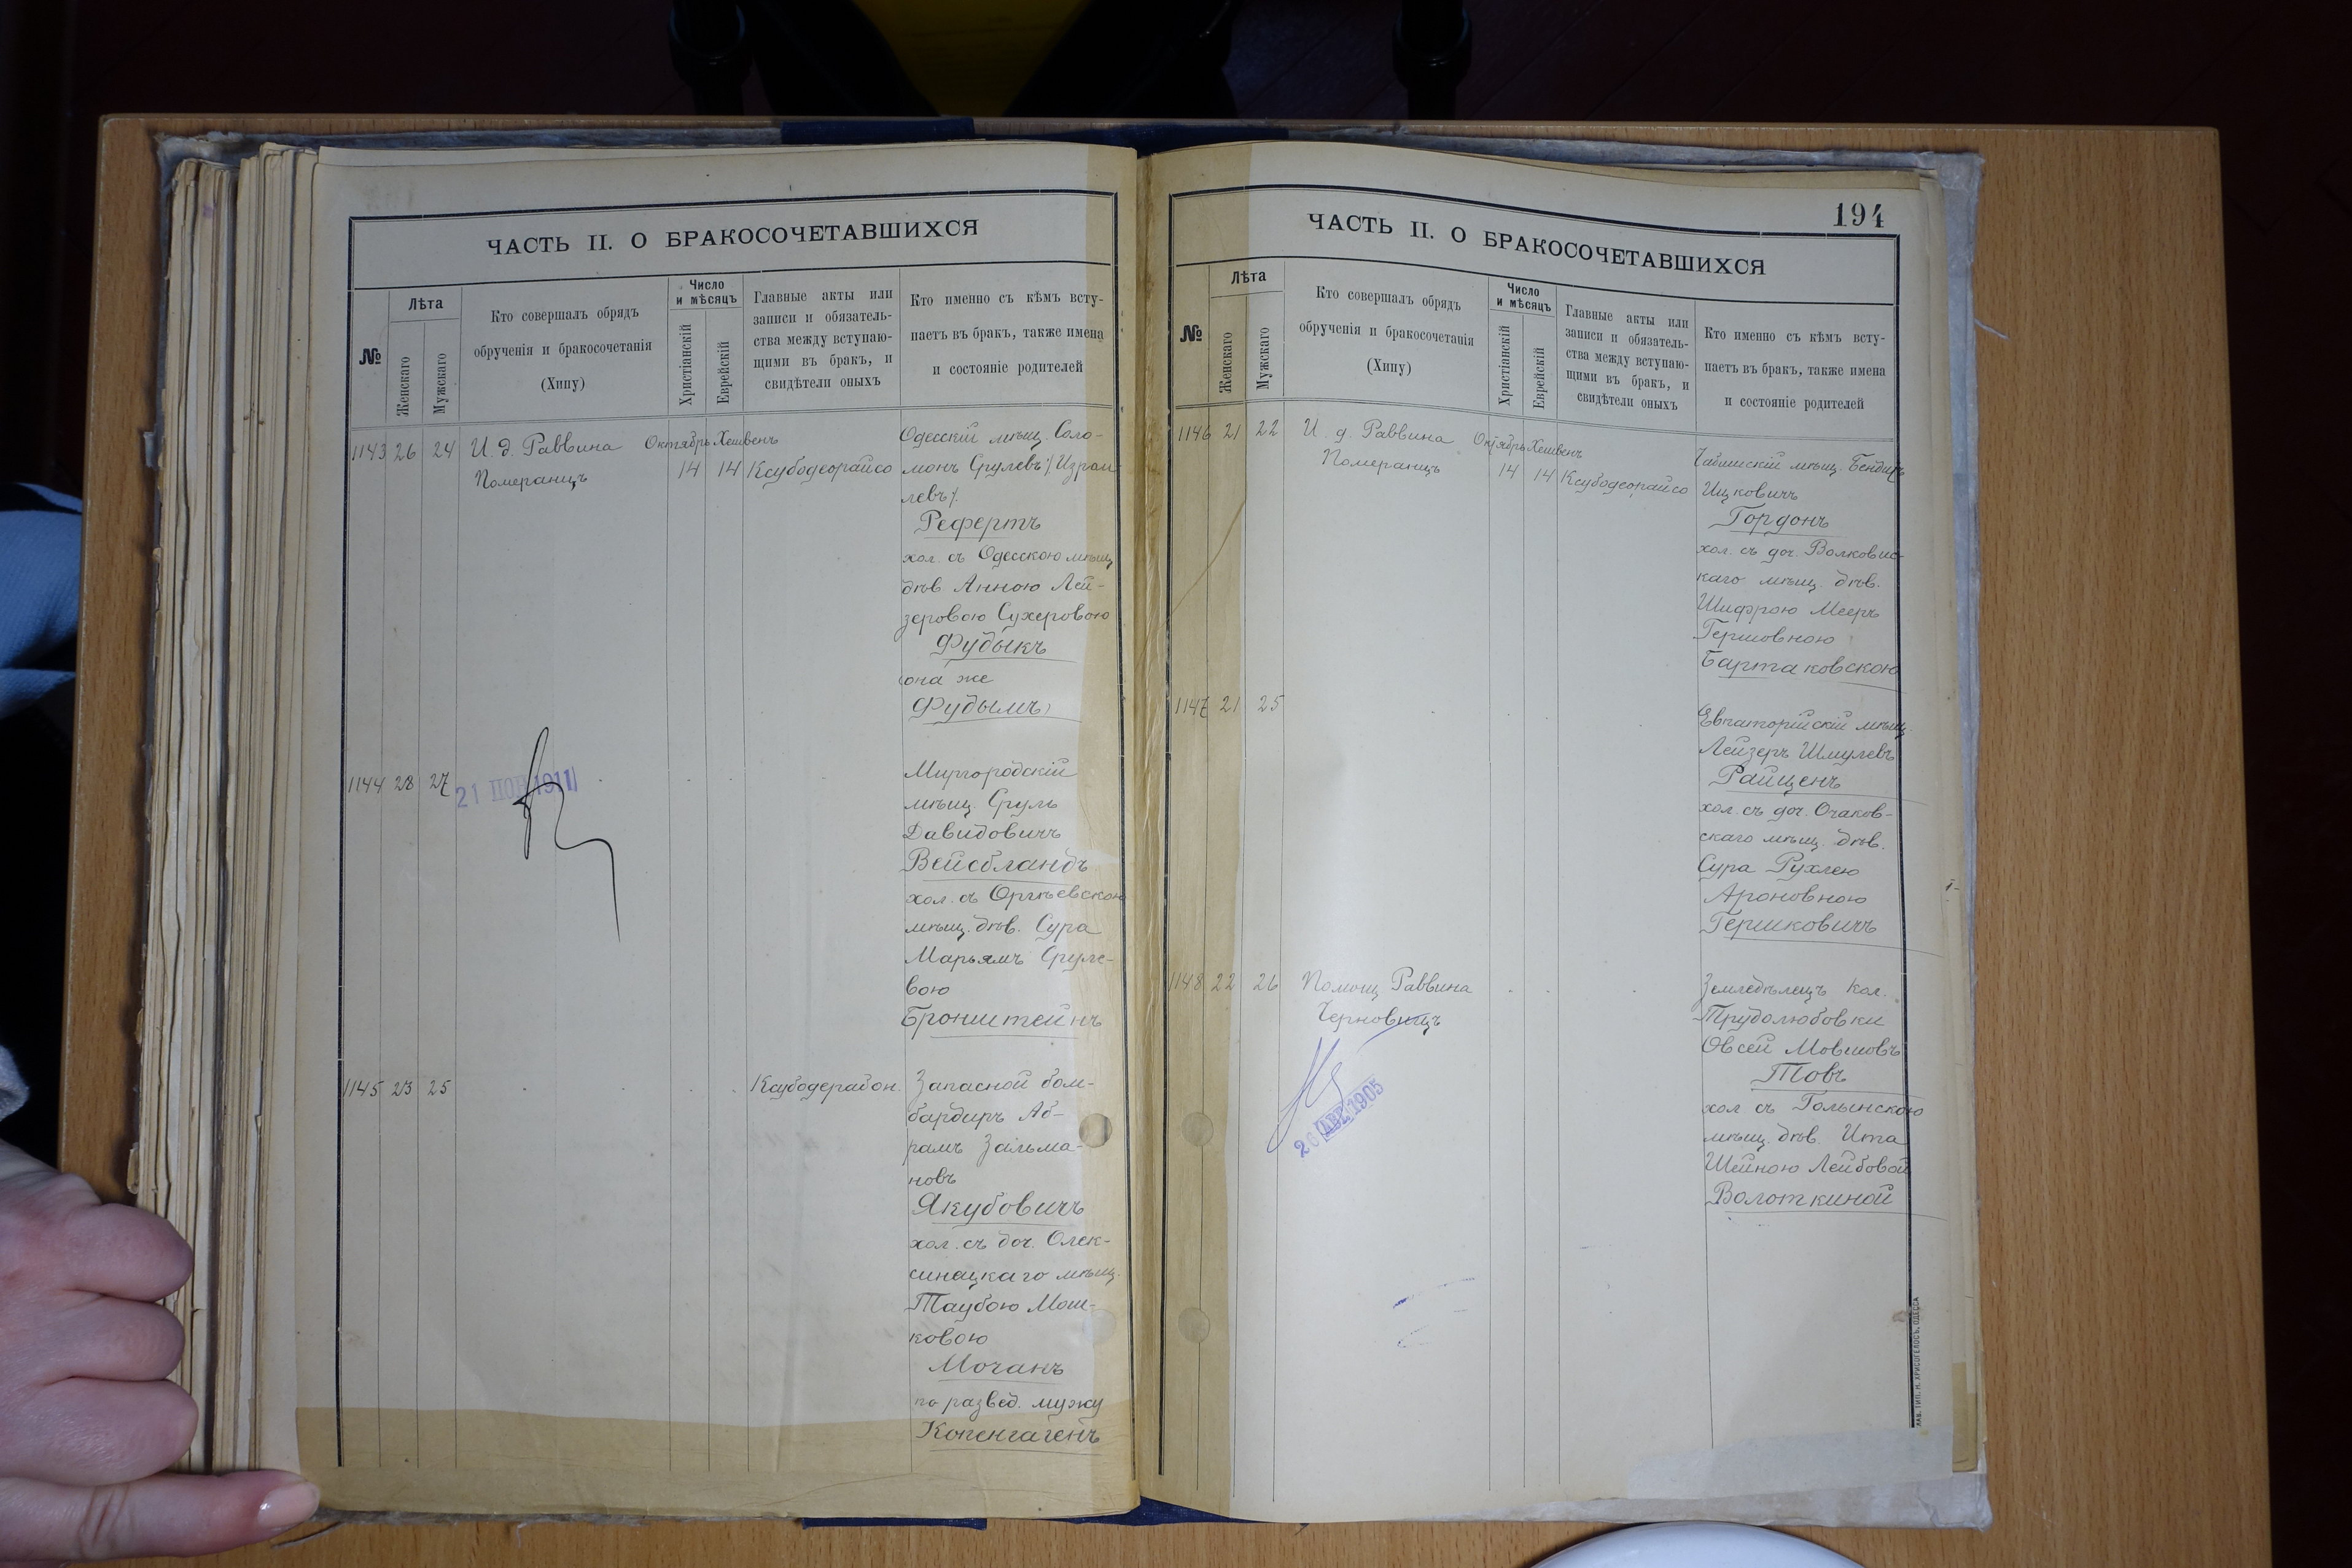 ЧАСТЬ II. О БРАКОСОЧЕТАВШИХСЯ
№
Лѣта
Женскаго
Мужскаго
Кто совершалъ обрядъ
обрученія и бракосочетанія
(Хипу)
Число
и мѣсяцъ
Христіанскій
Еврейскій
Главные акты или
записи и обязатель-
ства между вступаю-
щими въ бракъ, и
свидѣтели оныхъ
Кто именно съ кѣмъ всту-
паетъ въ бракъ, также имена
и состояніе родителей
1143 26 24 И. д. Раввина Октябрь Хешвенъ
Померанцъ 14 14 Ксубодеорайсо
Одесскій мѣщ. Соло-
монъ Срулевъ /Израи-
левъ/
Рефертъ
хол. съ Одесскою мѣщ
дѣв Анною Лей-
зеровою Сухеровою
Фудыкъ
(она же
Фудымъ)
1144 28 27
21 1911
Миргородскій
мѣщ. Сруль
Давидовичъ
Вейсбландъ
хол. съ Оргѣевскою
мѣщ. дѣв. Сура
Марьямъ Сруле-
вою
Бронштейнъ
1145 23 25 Ксубодерабон.
Запасной бом-
бардиръ Аб-
рамъ Зальма-
новъ
Якубовичъ
хол. съ доч. Олек-
синацкаго мѣщ.
Таубою Мош-
ковою
Мочанъ
по развед. мужу
Копенгагенъ
194
ЧАСТЬ II. О БРАКОСОЧЕТАВШИХСЯ
№
Лѣта
Женскаго
Мужскаго
Кто совершалъ обрядъ
обрученія и бракосочетанія
(Хипу)
Число
и мѣсяцъ
Христіанскій
Еврейскій
Главные акты или
записи и обязатель-
ства между вступаю-
щими въ бракъ, и
свидѣтели оныхъ
Кто именно съ кѣмъ всту-
паетъ въ бракъ, также имена
и состояніе родителей
1146 21 22 И. д. Раввина Октябрь Хешвенъ
Померанцъ 14 14 Ксубодеорайсо
мѣщ.
Ицковичъ
Гордонъ
хол. съ доч. Волковис-
каго мѣщ. дѣв.
Шифрою Мееръ
Гершовною
Бартаковскою
1147 21 25
Евпаторійскій мѣщ.
Лейзеръ Шмулевъ
Райценъ
хол. съ доч. Очаков-
скаго мѣщ. дѣв.
Сура Рухлею
Ароновною
Гершковичъ
1148 22 26 Помощ Раввина
Черновицъ
26 АВГ 1905
Земледѣлецъ Кол.
Трудолюбовки
Овсей Мовшовъ
Товъ
хол. съ Голынскою
мѣщ. дѣв. Ита
Шейною Лейбовой
Волоткиной